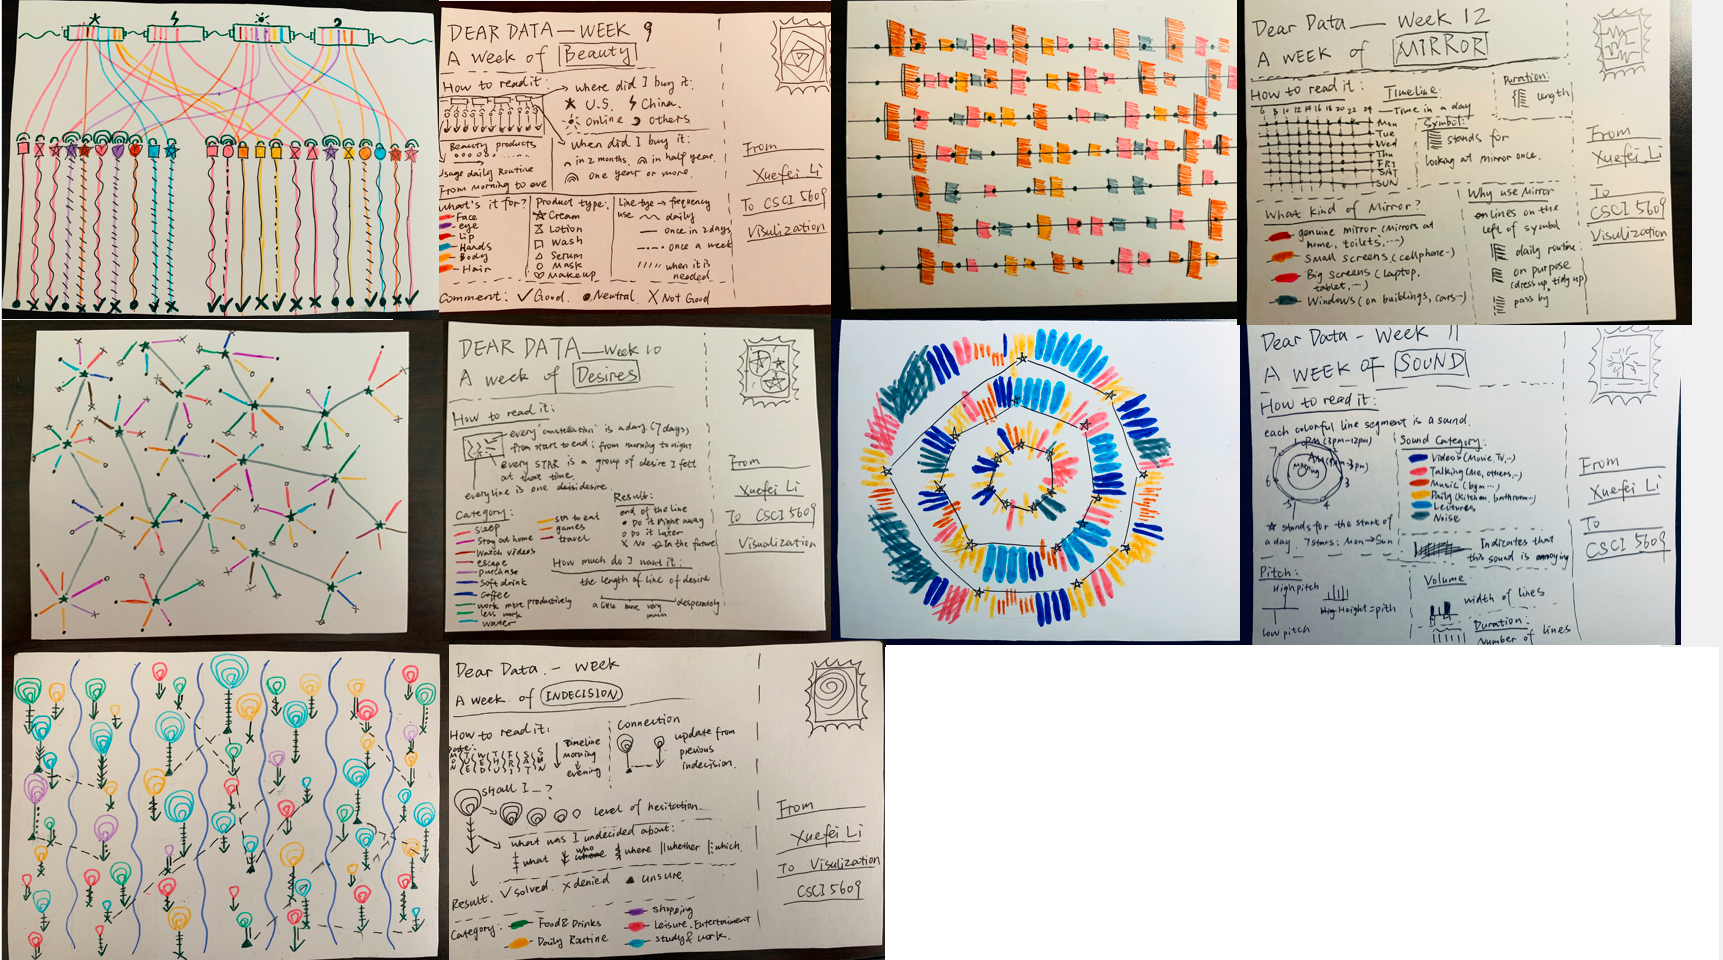 DEAR DATA—WEEK 9
A Week of Beauty
How to read it:
Beauty products
Usage daily Routine
From morning to eve
where did I buy it:
U.S.
China.
online
others
when did I buy it:
in 2 months.
in half year.
one year or more.
what's it for?
Face
eye
Lip
Hands
Body
Hair
Product type:
Cream
Lotion
Wash
Serum
Mask
Makeup
Line type → frequency
use
daily
once in 2 days
once a week
when it is
needed.
Comment: ✓ Good. ● Neutral X Not Good
From
Xuefei Li
To CSCI 5609
Visulization
Dear Data — Week 12
A WEEK of MIRROR
How to read it:
Timeline:
6 8 10 12 14 16 18 20 22 24
Time in a day
Mon
Tue
Wed
Thu
FRI
SAT
SUN
Symbol:
stands for
looking at mirror once.
Duration:
length
What kind of Mirror?
genuine mirror (mirrors at
home, toilets,...)
Small screens (cellphone..)
Big screens (laptop,
tablet,..)
Windows (on buildings, cars...)
Why use Mirror
lines on the
left of symbol
daily routine
on purpose
(dress up, tidy up)
pass by
From
Xuefei Li
To
CSCI 5609
Visulization
DEAR DATA—Week 10
A week of Desires
How to read it:
every "constellation" is a day (7 days,
from start to end: from morning to night
every STAR is a group of desire I felt
at that time.
every line is one desire.
Category:
sleep
Stay at home
Watch videos
escape
purchase
Soft drink
Coffee
work more productively
less work
water
sth to eat
games
travel
Result:
end of the line
Do it right away
Do it later
X No
In the future
How much do I want it:
the length of line of desire
a little more very desperately
From
Xuefei Li
To CSCI 5609
Visualization
Dear Data - Week 11
A WEEK OF SOUND
How to read it:
each colorful line segment is a sound.
stands for the start of
a day. 7 stars: Mon → Sun
Sound Category:
Videos (Movie, TV,..)
Talking (me, others,..)
Music (bgm...)
Daily (kitchen, bathroom..)
Lectures
Noise
Indicates that
this sound is annoying
Pitch:
High pitch
low pitch
Height = pitch
Volume
width of lines
Duration:
Number of lines
From
Xuefei Li
To
CSCI 5609
Dear Data - Week
A week of INDECISION
How to read it:
Date:
Timeline
morning
evening
Connection
update from
previous
indecision.
shall I ...?
level of hesitation.
what was I undecided about:
what
who
where
whether
which
Result. ✓ solved. X denied ▲ unsure.
Category:
Food & Drinks
Daily Routine
shopping
Leisure. Entertaiment
study & work.
From
Xuefei Li
To Visulization
CSCI 5609